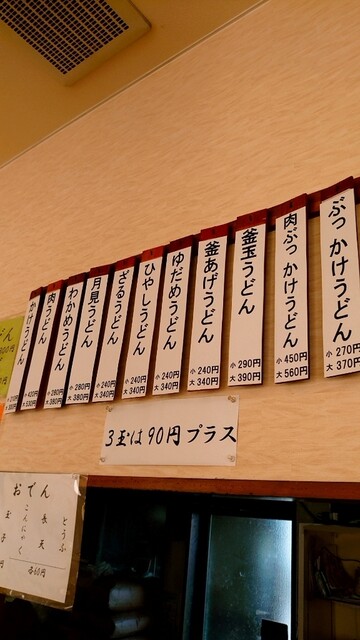 ぶっかけうどん
小 270円
大 370円
肉ぶっかけうどん
小 450円
大 560円
釜玉うどん
小 290円
大 390円
釜あげうどん
小 240円
大 340円
ゆだめうどん
小 240円
大 340円
ひやしうどん
小 240円
大 340円
ざるうどん
小 240円
大 340円
月見うどん
小 280円
大 380円
わかめうどん
小 280円
大 380円
肉うどん
小 420円
大 530円
かけうどん
3玉は90円プラス
おでん
とうふ
長天
こんにゃく
玉子
各60円